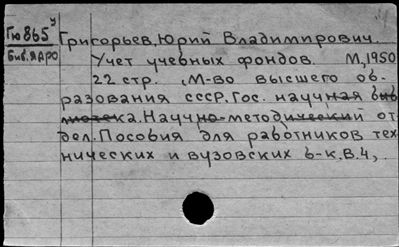 Гю865у
Григорьев, Юрий Владимирович.
Биб. ЯАРО
Учет учебных фондов. М, 1950
22 стр. (М-во высшего об-
разования СССР. Гос. научная биб
лиотека. Научно-методический от
дел. Пособия для работников тех
нических и вузовских б-к. В. 4,.